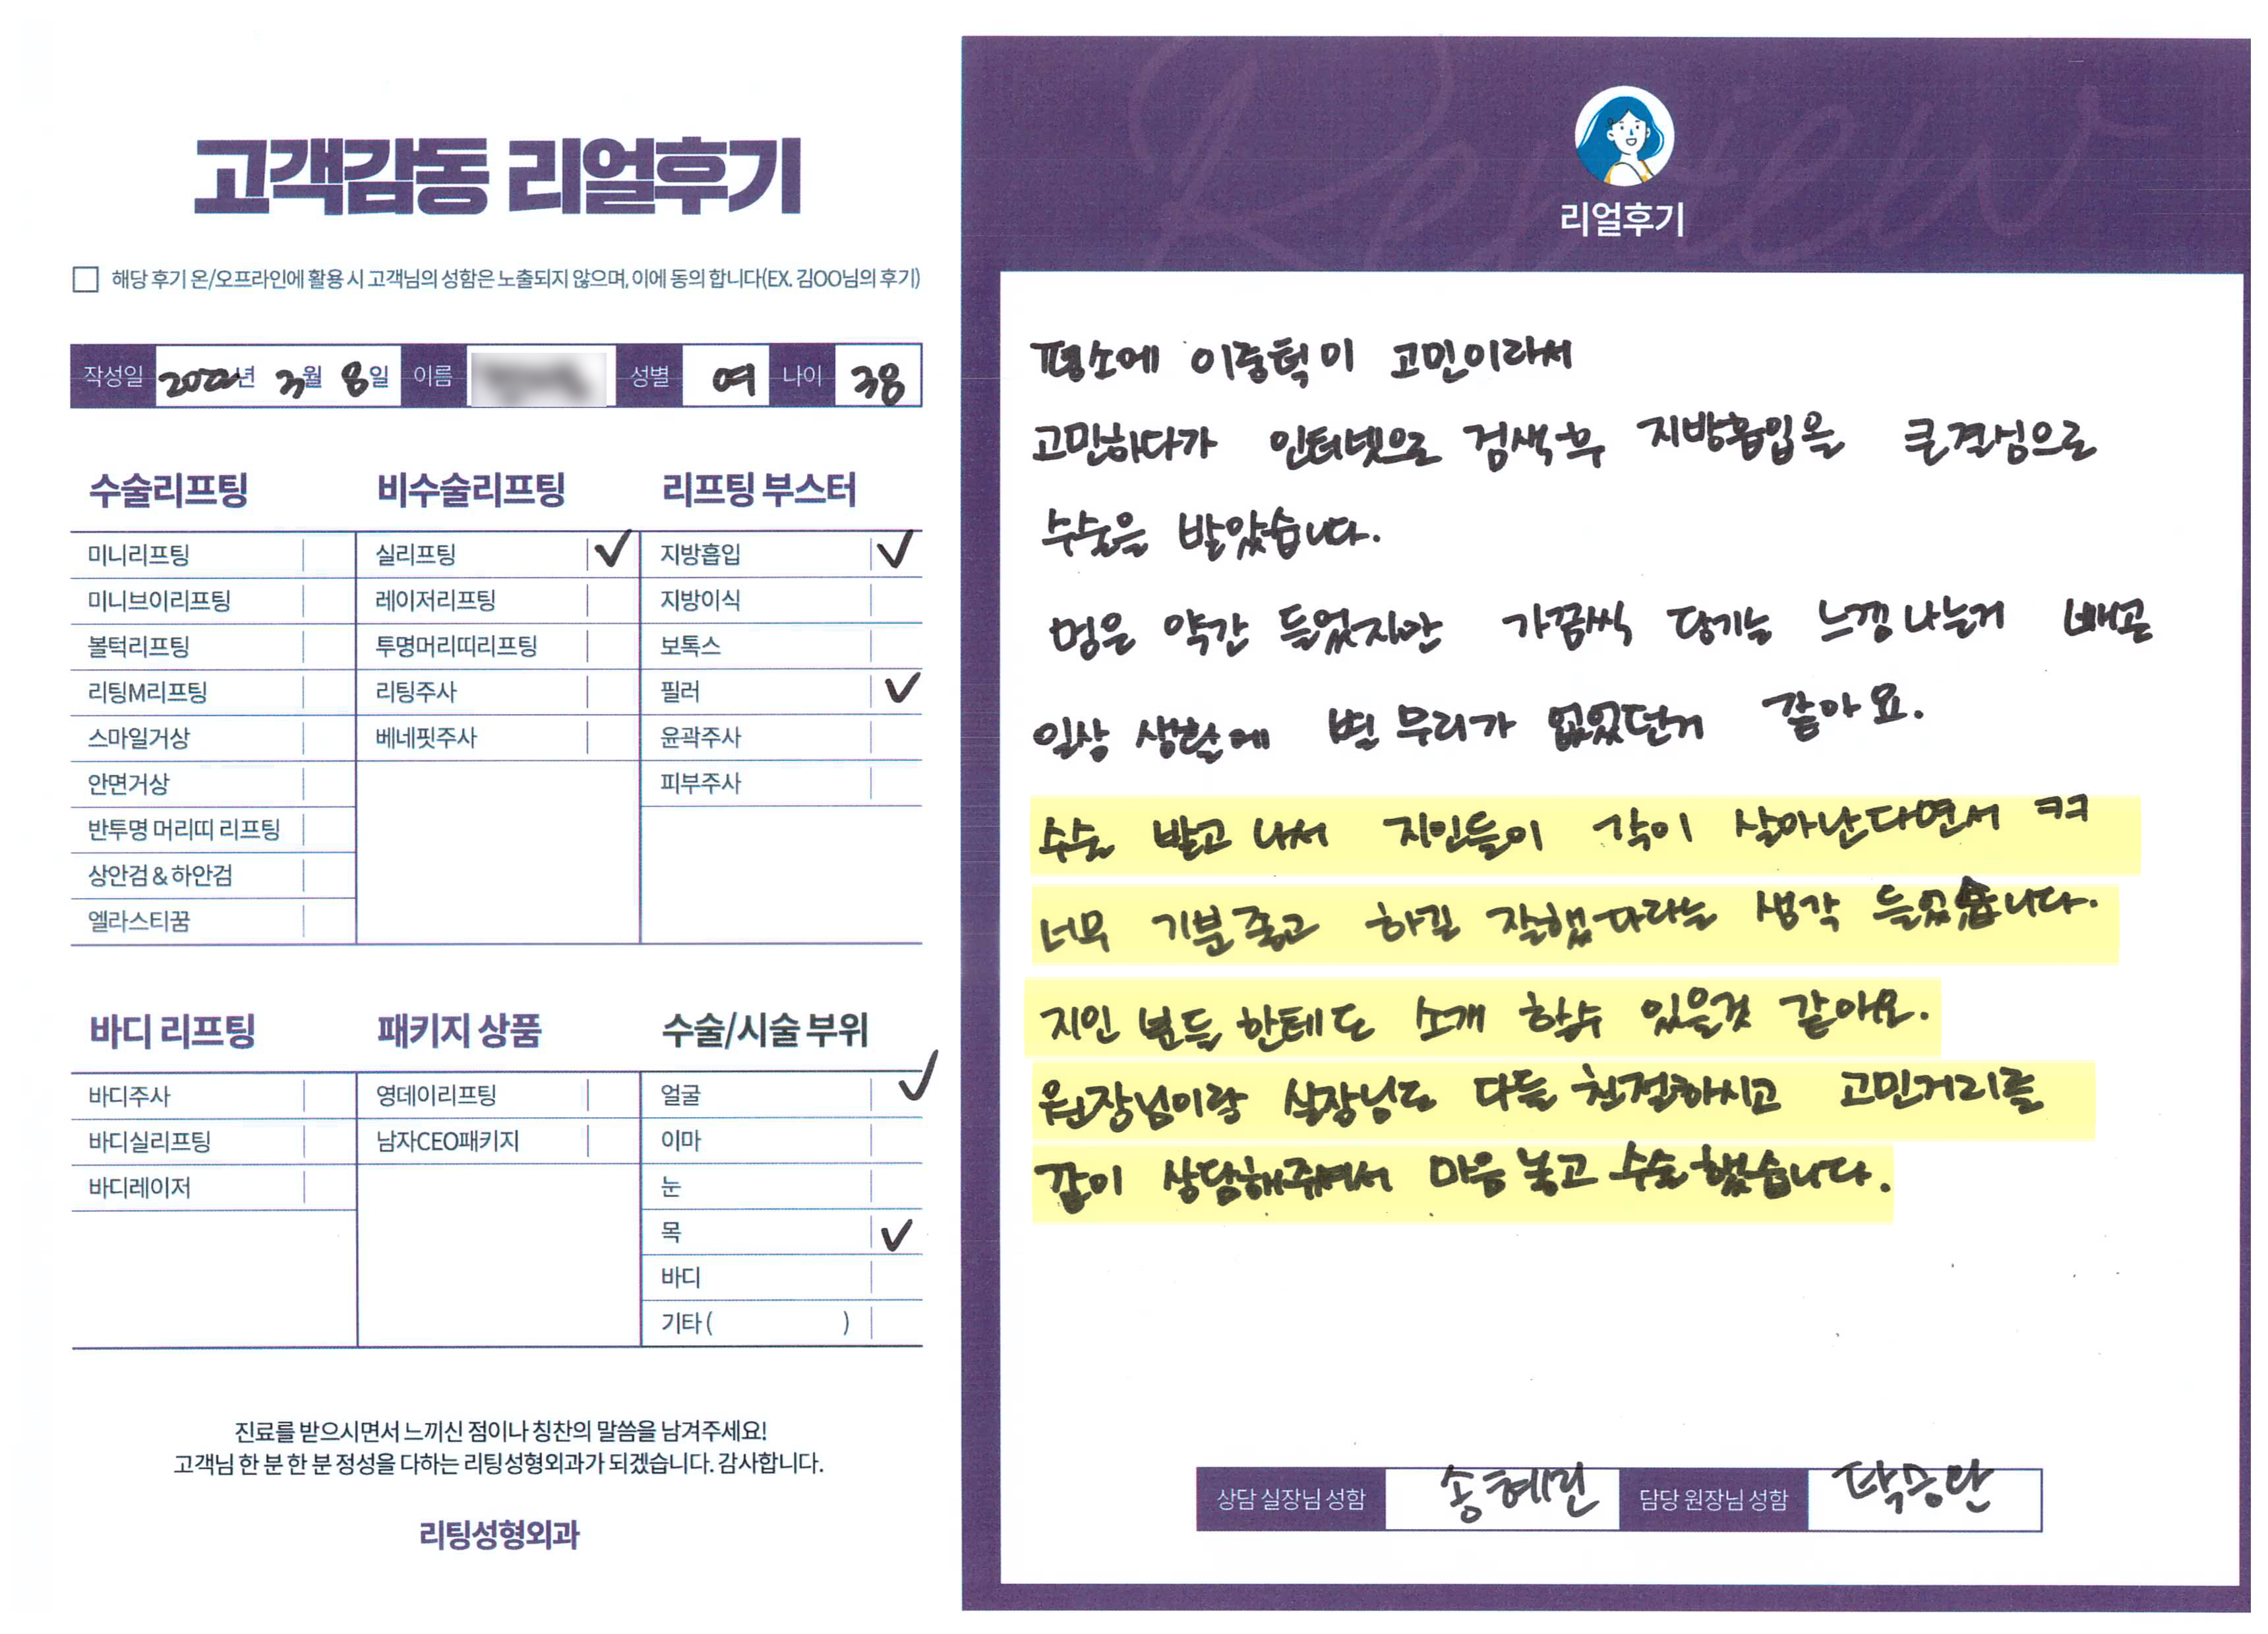 고객감동 리얼후기
해당 후기 온/오프라인에 활용 시 고객님의 성함은 노출되지 않으며, 이에 동의 합니다(EX. 김OO님의 후기)
작성일 2022년 3월 8일 이름 성별 여 나이 38
수술리프팅
미니리프팅
미니브이리프팅
볼턱리프팅
리팅M리프팅
스마일거상
안면거상
반투명 머리띠 리프팅
상안검 & 하안검
엘라스티꿈
비수술리프팅
실리프팅 ✓
레이저리프팅
투명머리띠리프팅
리팅주사
베네핏주사
리프팅 부스터
지방흡입 ✓
지방이식
보톡스
필러 ✓
윤곽주사
피부주사
바디 리프팅
바디주사
바디실리프팅
바디레이저
패키지 상품
영데이리프팅
남자CEO패키지
수술/시술 부위
얼굴 ✓
이마
눈
목 ✓
바디
기타 ( )
진료를 받으시면서 느끼신 점이나 칭찬의 말씀을 남겨주세요!
고객님 한 분 한 분 정성을 다하는 리팅성형외과가 되겠습니다. 감사합니다.
리팅성형외과
Review
리얼후기
평소에 이중턱이 고민이라서
고민하다가 인터넷으로 검색후 지방흡입을 큰결심으로
수술을 받았습니다.
멍은 약간 들었지만 가끔씩 당기는 느낌나는거 빼곤
일상 생활에 별 무리가 없었던거 같아요.
수술 받고 나서 지인들이 각이 살아난다면서 ㅋㅋ
너무 기분좋고 하길 잘했다라는 생각 들었습니다.
지인 분들 한테도 소개 할수 있을것 같아요.
원장님이랑 실장님도 다들 친절하시고 고민거리를
같이 상담해주셔서 마음놓고 수술했습니다.
상담 실장님 성함 송혜린 담당 원장님 성함